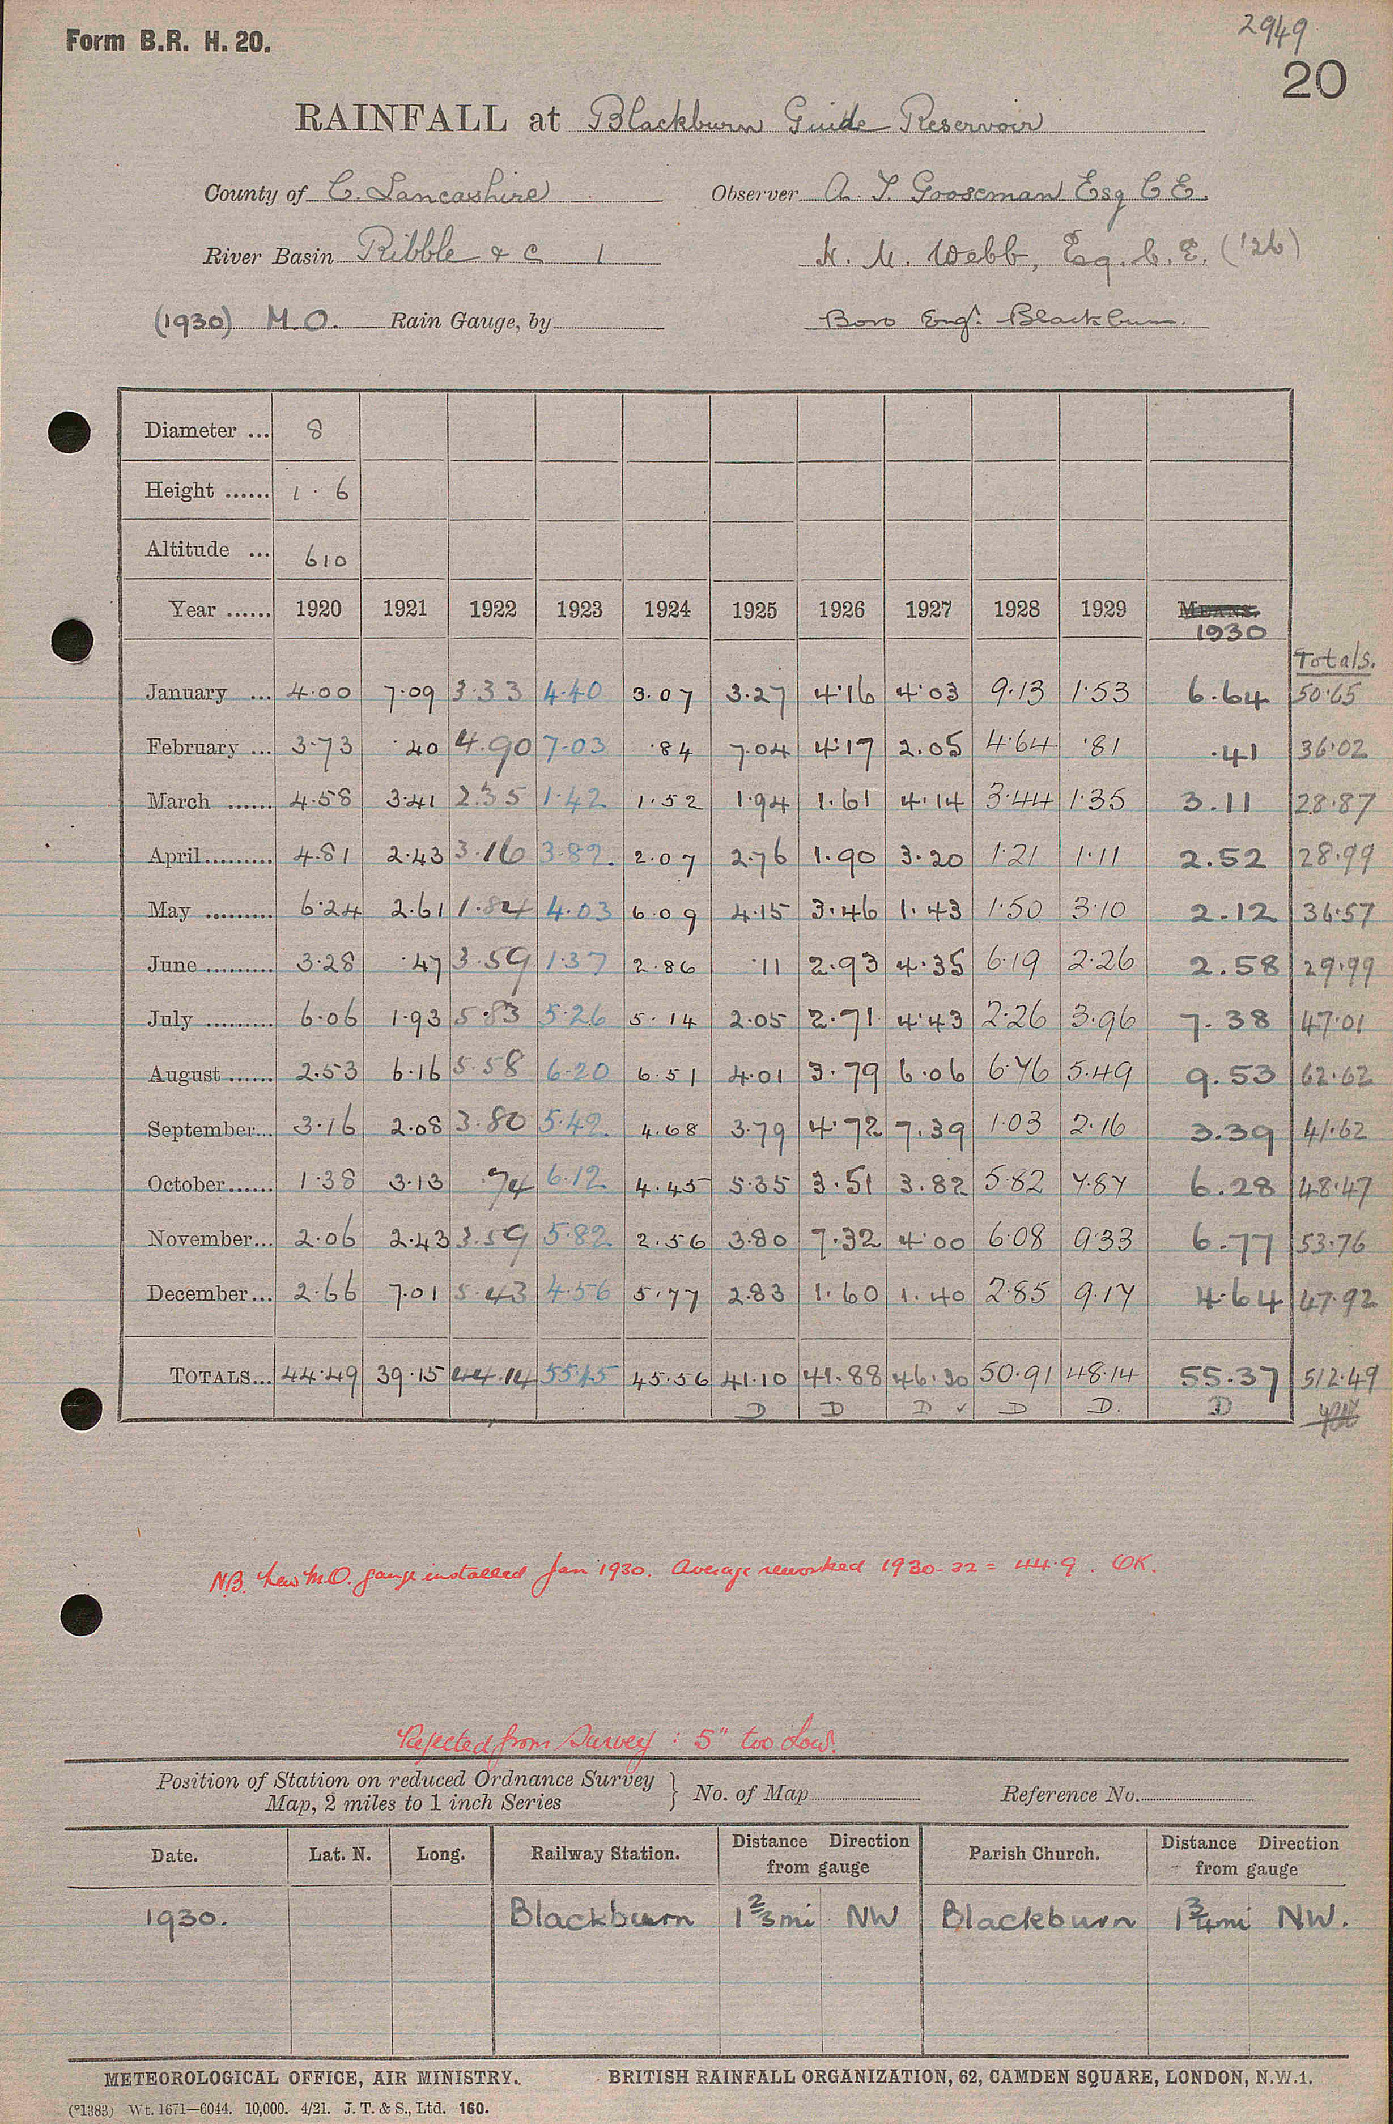 2949
Form B.R. H. 20.
20
RAINFALL at Blackburn Guide Reservoir
County of C. Lancashire Observer A. T. Gooseman Esq C E.
River Basin Ribble & c 1 H. M. Webb, Esq. C. E. ('26)
(1930) M.O. Rain Gauge, by Boro Engr. Blackburn.
Diameter ... 8
Height ...... 1 · 6
Altitude ... 610
Year ...... 1920 1921 1922 1923 1924 1925 1926 1927 1928 1929 MEANS.
1930
Totals.
January ... 4·00 7·09 3·33 4·40 3·07 3·27 4·16 4·03 9·13 1·53 6·64 50·65
February ... 3·73 ·20 4·90 7·03 ·84 7·04 4·17 2·05 4·64 ·81 ·41 36·02
March ...... 4·58 3·41 2·35 1·42 1·52 1·94 1·61 4·14 3·44 1·35 3·11 28·87
April......... 4·81 2·43 3·16 3·82 2·07 2·76 1·90 3·20 1·21 1·11 2.52 28·99
May ......... 6·24 2·61 1·84 4·03 6·09 4·15 3·46 1·43 1·50 3·10 2·12 36·57
June ......... 3·28 ·47 3·59 1·37 2·86 ·11 2·93 4·35 6·19 2·26 2.58 29·99
July ......... 6·06 1·93 5·83 5·26 5·14 2·05 2·71 4·43 2·26 3·96 7·38 47·01
August ...... 2·53 6·16 5·58 6·20 6·51 4·01 3·79 6·06 6·76 5·49 9.53 62·62
September... 3·16 2·08 3·80 5·42 4·68 3·79 4·72 7·39 1·03 2·16 3.39 41·62
October...... 1·38 3·13 ·74 6·12 4·45 5·35 3·51 3·82 5·82 7·87 6·28 48·47
November... 2·06 2·43 3·59 5·82 2·56 3·80 7·32 4·00 6·08 9·33 6·77 53·76
December... 2·66 7·01 5·43 4·56 5·77 2·83 1·60 1·40 2·85 9·17 4·64 47·92
TOTALS... 44·49 39·15 44·14 55·45 45·56 41·10 41·88 46·30 50·91 48·14 55.37 512·49
D D D ✓ D D. D
N.B. New M.O. gauge installed Jan 1930. Average reworked 1930-32 = 44·9. OK.
Rejected from Survey : 5" too low.
Position of Station on reduced Ordnance Survey Map, 2 miles to 1 inch Series } No. of Map Reference No.
Date. Lat. N. Long. Railway Station. Distance Direction from gauge Parish Church. Distance Direction from gauge
1930. Blackburn 1 2/3 mi NW Blackburn 1 3/4 mi NW.
METEOROLOGICAL OFFICE, AIR MINISTRY. BRITISH RAINFALL ORGANIZATION, 62, CAMDEN SQUARE, LONDON, N.W.1.
(*1383) Wt. 1671—6044. 10,000. 4/21. J. T. & S., Ltd. 160.